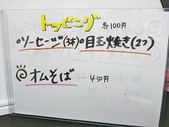 トッピング 各100円
◎ソーセージ(3本)◎目玉焼き(2コ)
◎オムそば …450円